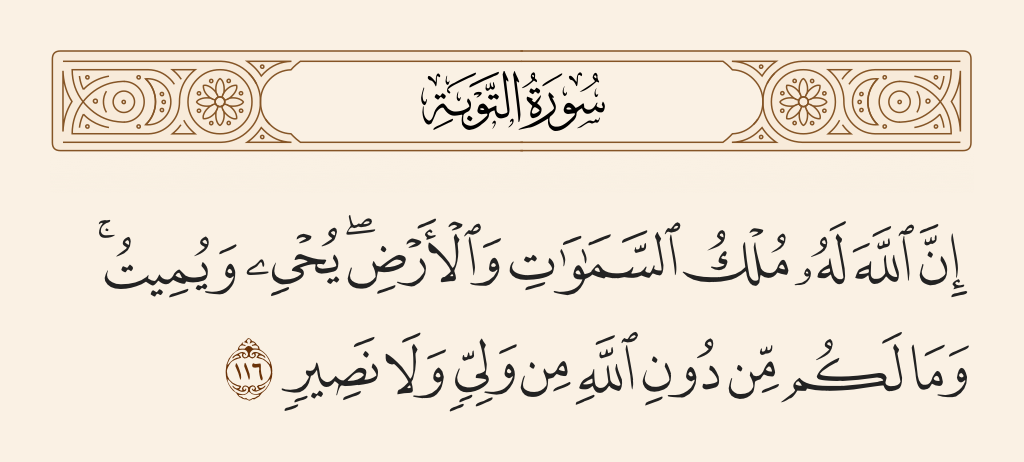 سُورَةُ التَّوۡبَةِ
إِنَّ ٱللَّهَ لَهُۥ مُلۡكُ ٱلسَّمَٰوَٰتِ وَٱلۡأَرۡضِۖ يُحۡيِۦ وَيُمِيتُۚ
وَمَا لَكُم مِّن دُونِ ٱللَّهِ مِن وَلِيّٖ وَلَا نَصِيرٖ ١١٦